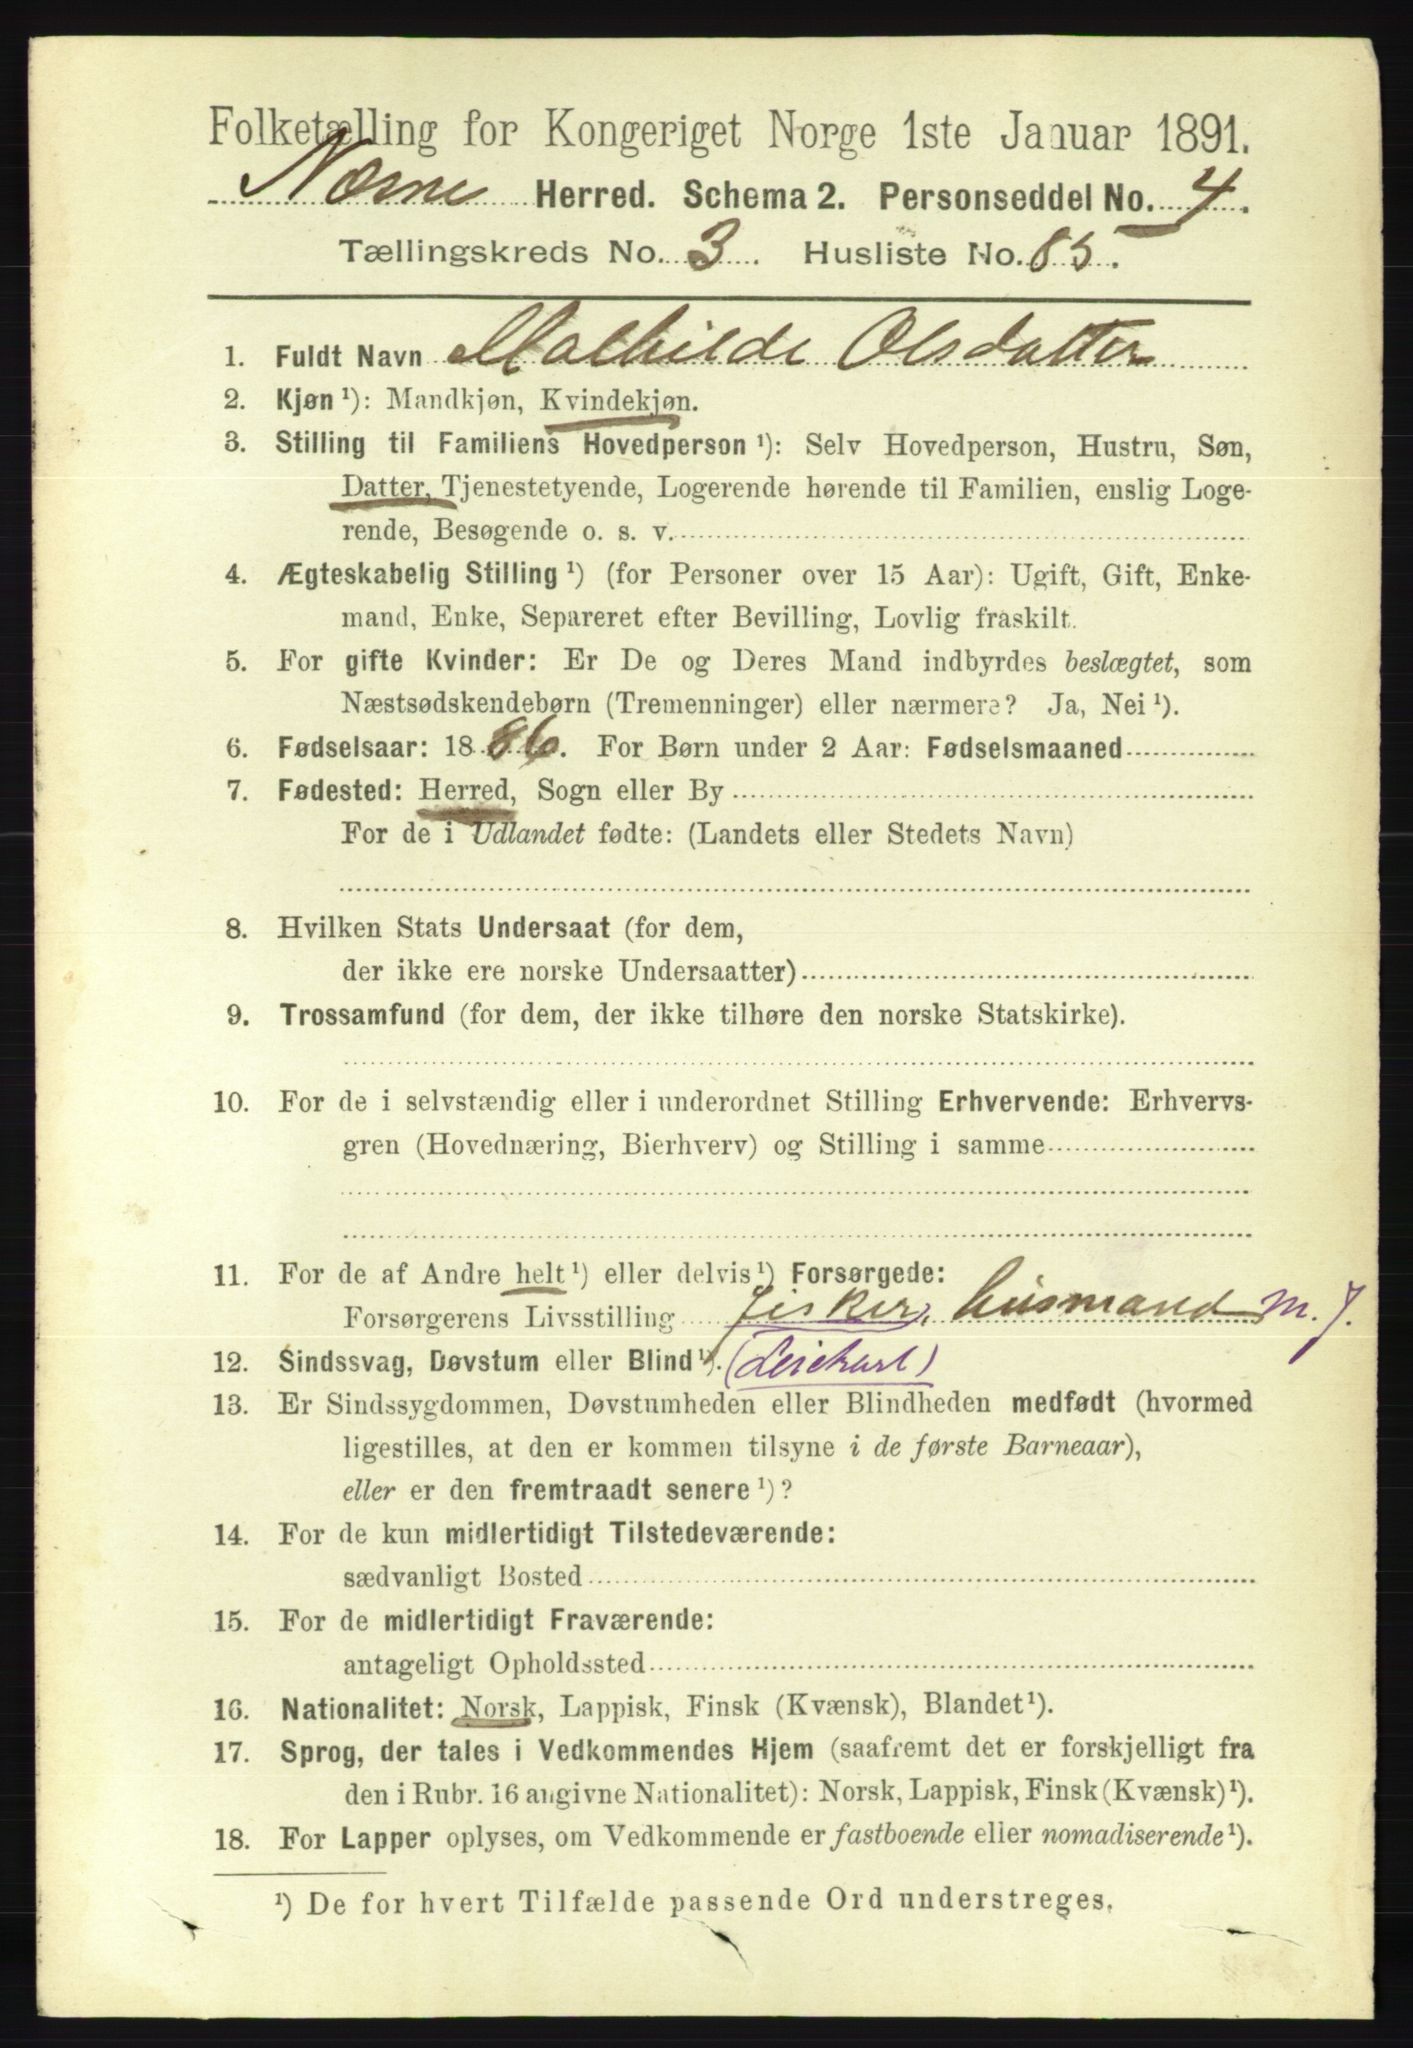 Folketælling for Kongeriget Norge 1ste Januar 1891.
Næsne Herred. Schema 2. Personseddel No. 4.
Tællingskreds No. 3. Husliste No. 85.
1. Fuldt Navn Mathilde Olsdatter
2. Kjøn ¹): Mandkjøn, Kvindekjøn.
3. Stilling til Familiens Hovedperson ¹): Selv Hovedperson, Hustru, Søn,
Datter, Tjenestetyende, Logerende hørende til Familien, enslig Loge-
rende, Besøgende o. s. v.
4. Ægteskabelig Stilling ¹) (for Personer over 15 Aar): Ugift, Gift, Enke-
mand, Enke, Separeret efter Bevilling, Lovlig fraskilt.
5. For gifte Kvinder: Er De og Deres Mand indbyrdes beslægtet, som
Næstsødskendebørn (Tremenninger) eller nærmere? Ja, Nei ¹).
6. Fødselsaar: 1886. For Børn under 2 Aar: Fødselsmaaned
7. Fødested: Herred, Sogn eller By
For de i Udlandet fødte: (Landets eller Stedets Navn)
8. Hvilken Stats Undersaat (for dem,
der ikke ere norske Undersaatter)
9. Trossamfund (for dem, der ikke tilhøre den norske Statskirke).
10. For de i selvstændig eller i underordnet Stilling Erhvervende: Erhvervs-
gren (Hovednæring, Bierhverv) og Stilling i samme
11. For de af Andre helt ¹) eller delvis ¹) Forsørgede:
Forsørgerens Livsstilling Fisker, husmand m. J.
12. Sindssvag, Døvstum eller Blind ¹). (Leiekarl)
13. Er Sindssygdommen, Døvstumheden eller Blindheden medfødt (hvormed
ligestilles, at den er kommen tilsyne i de første Barneaar),
eller er den fremtraadt senere ¹)?
14. For de kun midlertidigt Tilstedeværende:
sædvanligt Bosted
15. For de midlertidigt Fraværende:
antageligt Opholdssted
16. Nationalitet: Norsk, Lappisk, Finsk (Kvænsk), Blandet ¹).
17. Sprog, der tales i Vedkommendes Hjem (saafremt det er forskjelligt fra
den i Rubr. 16 angivne Nationalitet): Norsk, Lappisk, Finsk (Kvænsk) ¹).
18. For Lapper oplyses, om Vedkommende er fastboende eller nomadiserende ¹).
¹) De for hvert Tilfælde passende Ord understreges.